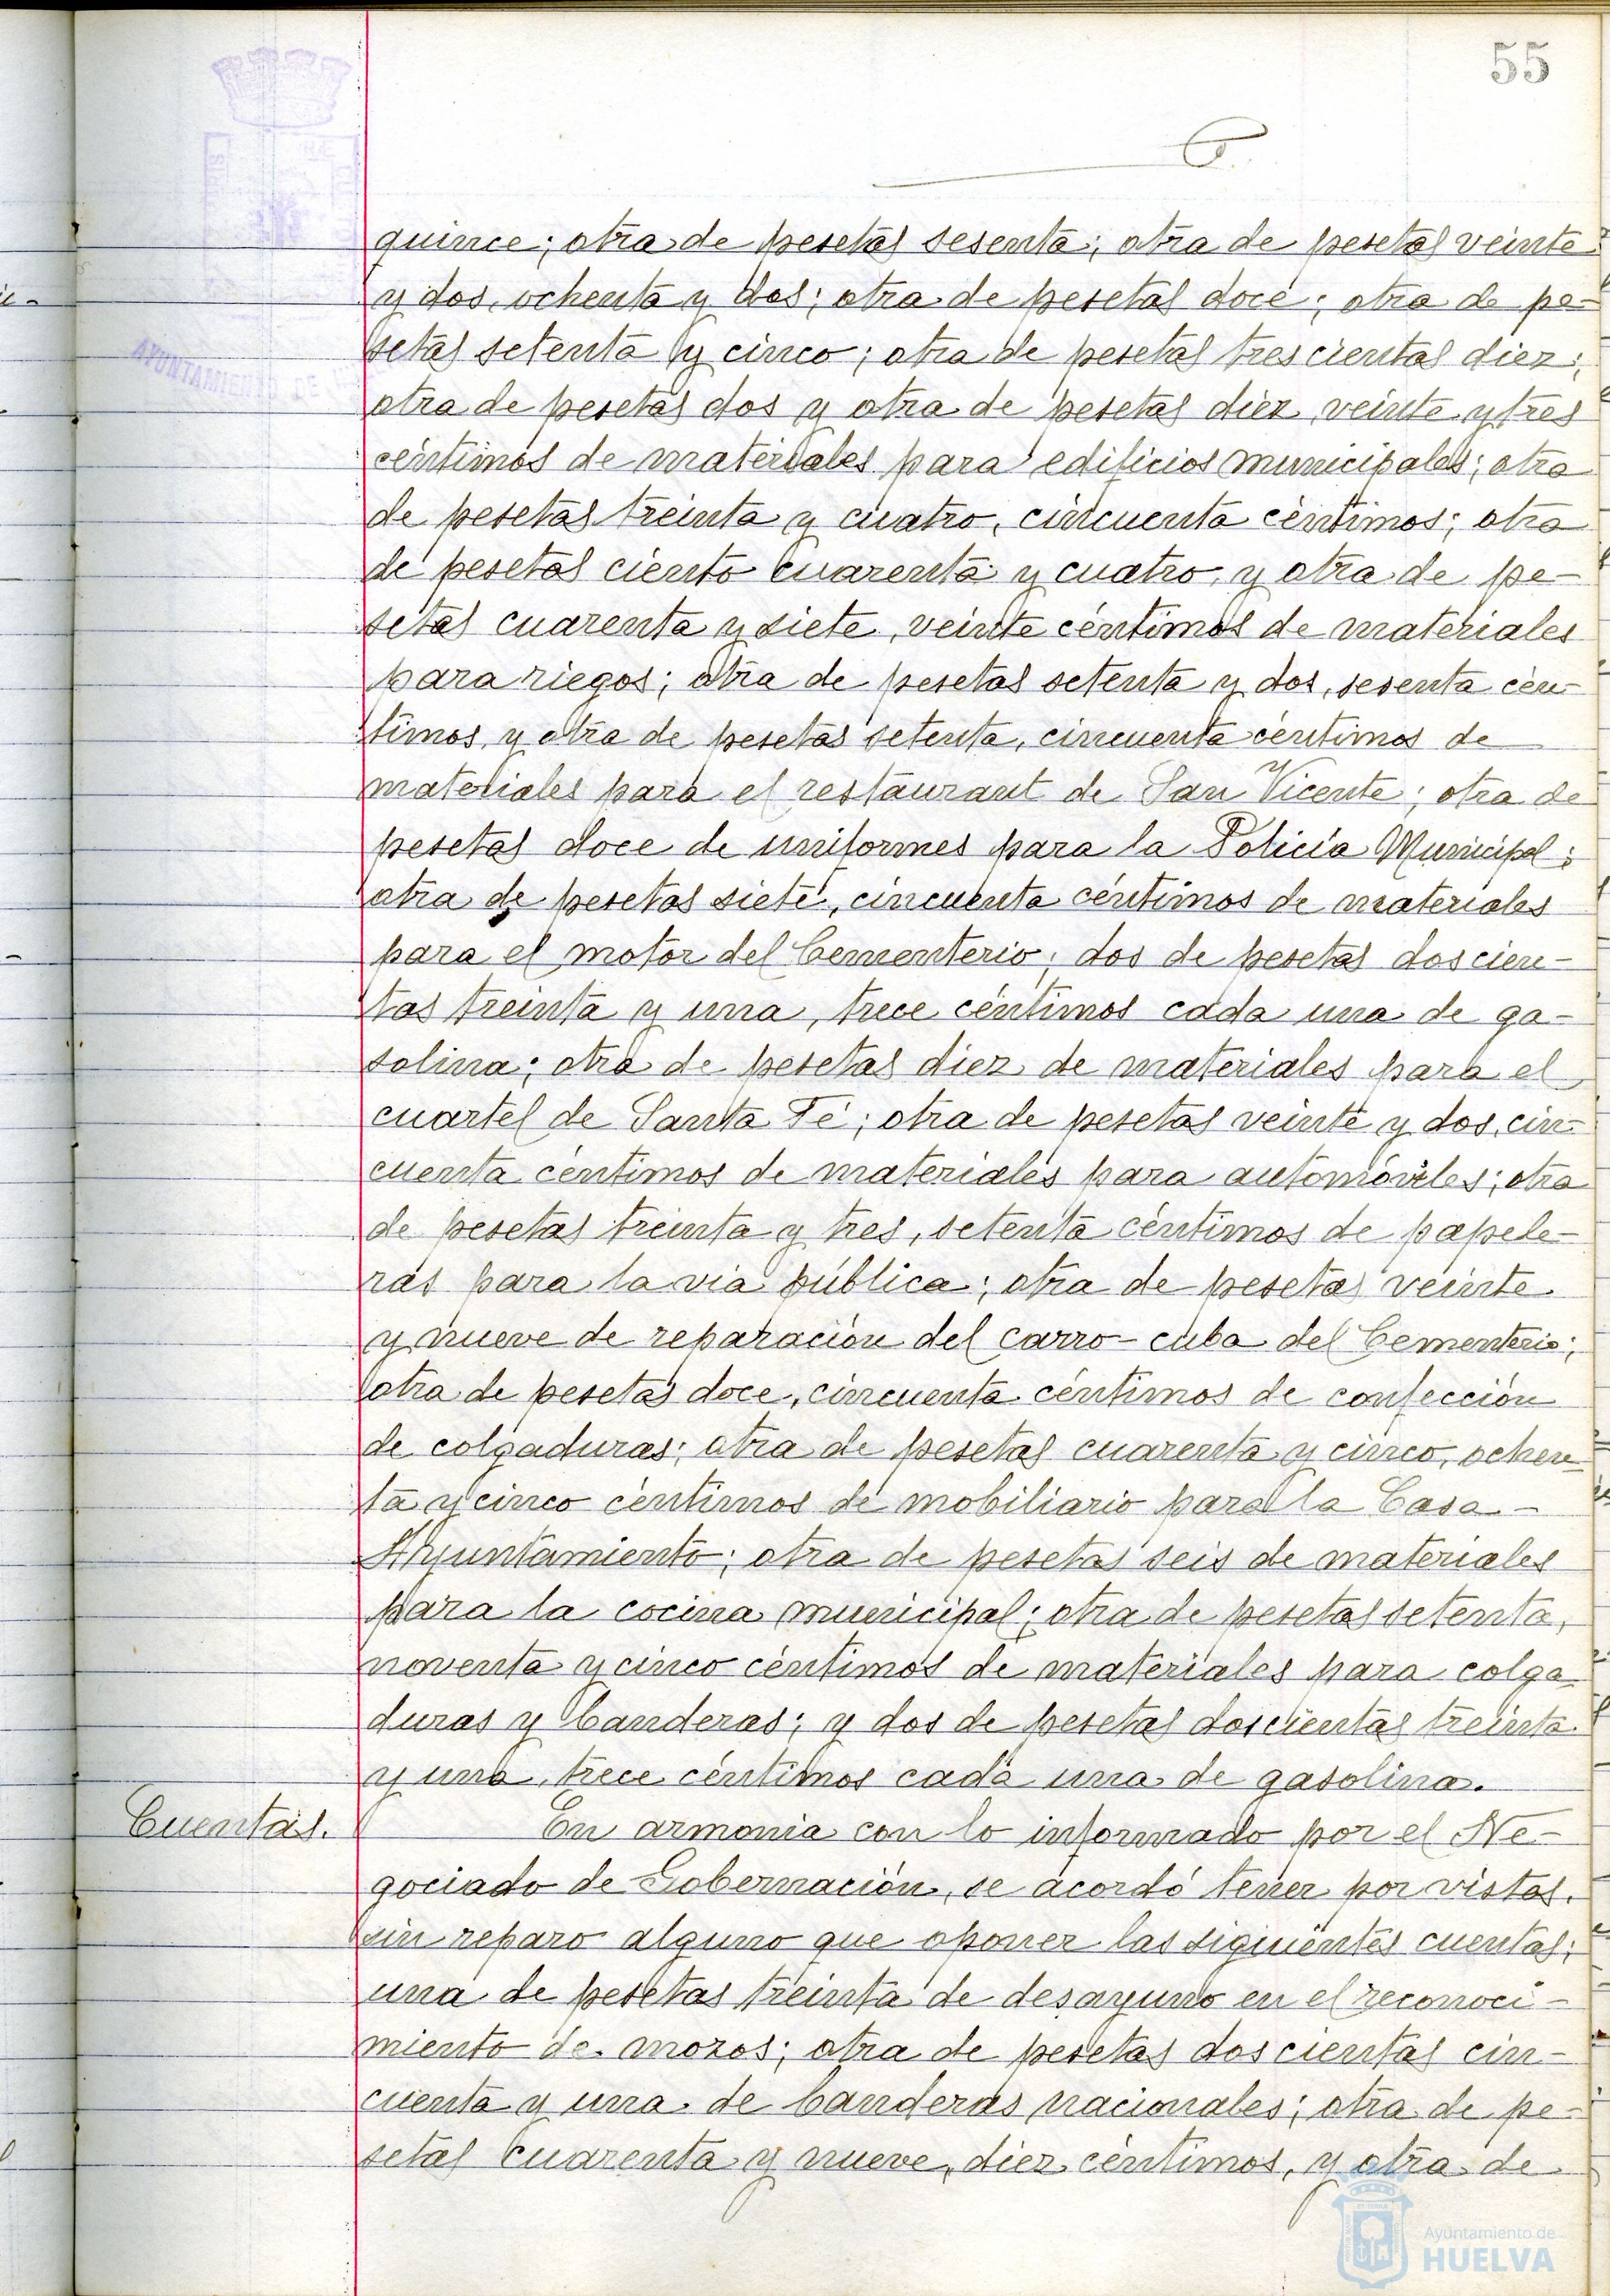 55
quince; otra de pesetas sesenta; otra de pesetas veinte
y dos, ochenta y dos; otra de pesetas doce; otra de pe-
setas setenta y cinco; otra de pesetas trescientas diez;
otra de pesetas dos y otra de pesetas diez, veinte y tres
céntimos de materiales para edificios municipales; otra
de pesetas treinta y cuatro, cincuenta céntimos; otra
de pesetas ciento cuarenta y cuatro, y otra de pe-
setas cuarenta y siete, veinte céntimos de materiales
para riegos; otra de pesetas setenta y dos, sesenta cén-
timos, y otra de pesetas setenta, cincuenta céntimos de
materiales para el restaurant de San Vicente; otra de
pesetas doce de uniformes para la Policía Municipal;
otra de pesetas siete, cincuenta céntimos de materiales
para el motor del Cementerio; dos de pesetas doscien-
tas treinta y una, trece céntimos cada una de ga-
solina; otra de pesetas diez de materiales para el
cuartel de Santa Fé; otra de pesetas veinte y dos, cin-
cuenta céntimos de materiales para automóviles; otra
de pesetas treinta y tres, setenta céntimos de papele-
ras para la via pública; otra de pesetas veinte
y nueve de reparación del carro-cuba del Cementerio;
otra de pesetas doce, cincuenta céntimos de confección
de colgaduras; otra de pesetas cuarenta y cinco, ochen-
ta y cinco céntimos de mobiliario para la Casa-
Ayuntamiento; otra de pesetas seis de materiales
para la cocina municipal; otra de pesetas setenta,
noventa y cinco céntimos de materiales para colga
duras y banderas; y dos de pesetas doscientas treinta
y una, trece céntimos cada una de gasolina.
Cuentas.
En armonia con lo informado por el Ne-
gociado de Gobernación, se acordó tener por vistas,
sin reparo alguno que oponer las siguientes cuentas;
una de pesetas treinta de desayuno en el reconoci-
miento de mozos; otra de pesetas doscientas cin-
cuenta y una de banderas nacionales; otra de pe-
setas cuarenta y nueve, diez céntimos, y otra de
AYUNTAMIENTO DE
Ayuntamiento de
HUELVA